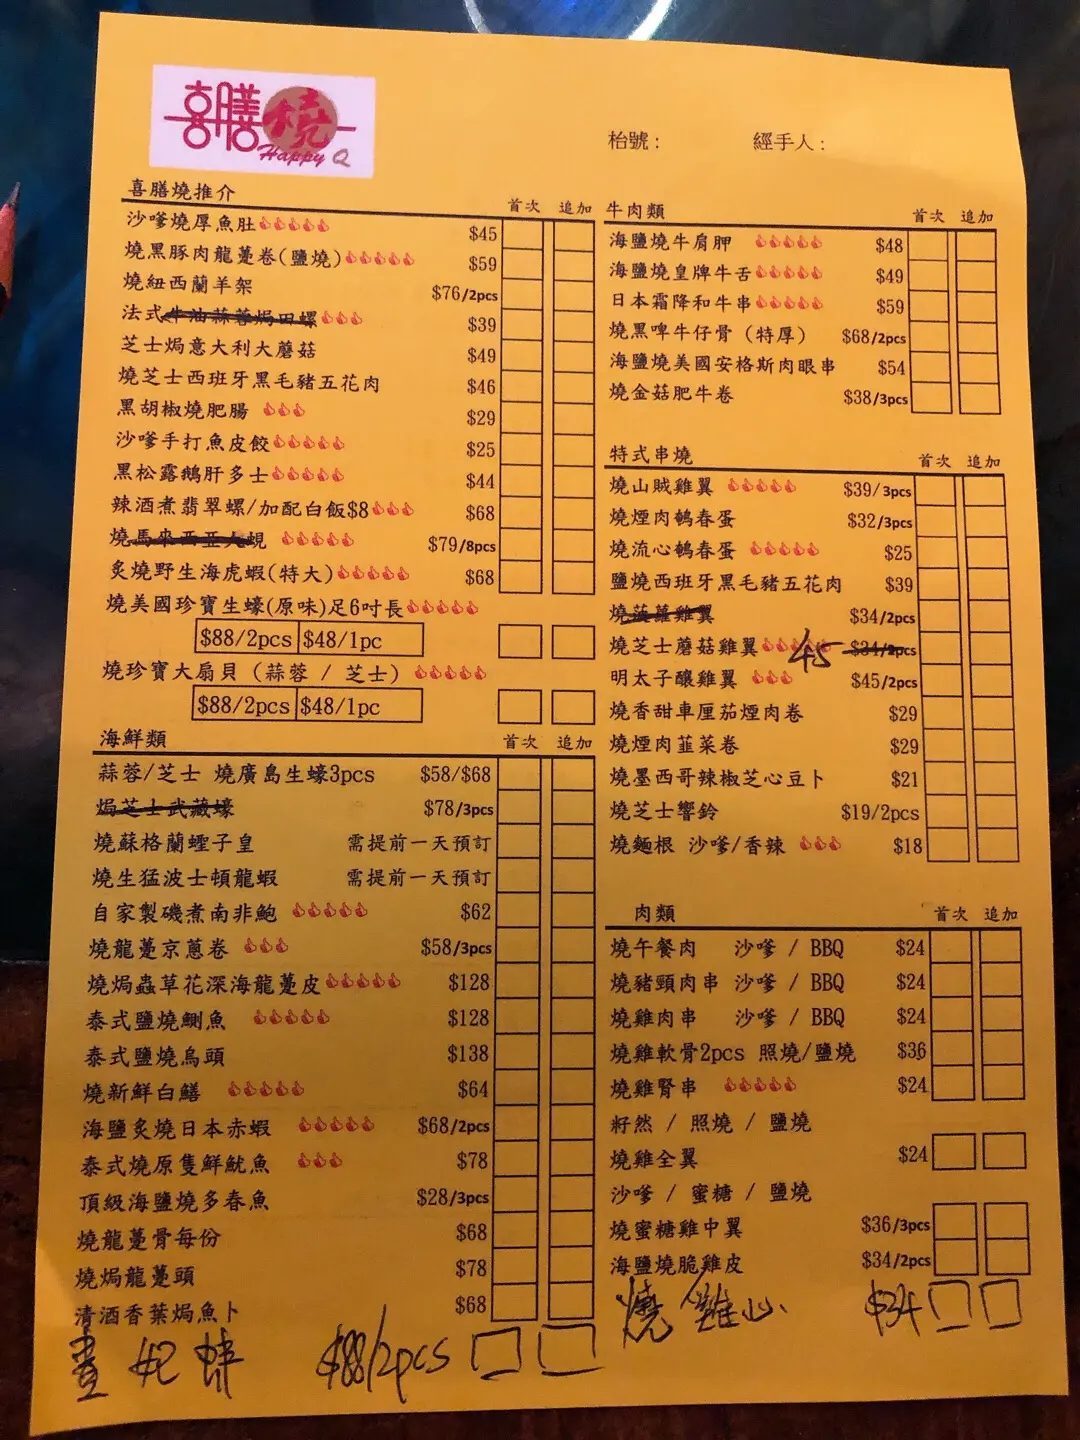 喜膳燒
Happy Q
枱號：
經手人：
喜膳燒推介 首次 追加
沙嗲燒厚魚肚 $45
燒黑豚肉龍躉卷(鹽燒) $59
燒紐西蘭羊架 $76/2pcs
法式牛油蒜蓉焗田螺 $39
芝士焗意大利大蘑菇 $49
燒芝士西班牙黑毛豬五花肉 $46
黑胡椒燒肥腸 $29
沙嗲手打魚皮餃 $25
黑松露鵝肝多士 $44
辣酒煮翡翠螺/加配白飯$8 $68
燒馬來西亞大蜆 $79/8pcs
炙燒野生海虎蝦(特大) $68
燒美國珍寶生蠔(原味)足6吋長
$88/2pcs $48/1pc
燒珍寶大扇貝 (蒜蓉 / 芝士)
$88/2pcs $48/1pc
海鮮類 首次 追加
蒜蓉/芝士 燒廣島生蠔3pcs $58/$68
焗芝士武藏蠔 $78/3pcs
燒蘇格蘭蟶子皇 需提前一天預訂
燒生猛波士頓龍蝦 需提前一天預訂
自家製磯煮南非鮑 $62
燒龍躉京蔥卷 $58/3pcs
燒焗蟲草花深海龍躉皮 $128
泰式鹽燒鰂魚 $128
泰式鹽燒烏頭 $138
燒新鮮白鱔 $64
海鹽炙燒日本赤蝦 $68/2pcs
泰式燒原隻鮮魷魚 $78
頂級海鹽燒多春魚 $28/3pcs
燒龍躉骨每份 $68
燒焗龍躉頭 $78
清酒香葉焗魚卜 $68
$88/2pcs
牛肉類 首次 追加
海鹽燒牛肩胛 $48
海鹽燒皇牌牛舌 $49
日本霜降和牛串 $59
燒黑啤牛仔骨 (特厚) $68/2pcs
海鹽燒美國安格斯肉眼串 $54
燒金菇肥牛卷 $38/3pcs
特式串燒 首次 追加
燒山賊雞翼 $39/3pcs
燒煙肉鵪春蛋 $32/3pcs
燒流心鵪春蛋 $25
鹽燒西班牙黑毛豬五花肉 $39
燒菠蘿雞翼 $34/2pcs
燒芝士蘑菇雞翼 45 $34/2pcs
明太子釀雞翼 $45/2pcs
燒香甜車厘茄煙肉卷 $29
燒煙肉韮菜卷 $29
燒墨西哥辣椒芝心豆卜 $21
燒芝士響鈴 $19/2pcs
燒麵根 沙嗲/香辣 $18
肉類 首次 追加
燒午餐肉 沙嗲 / BBQ $24
燒豬頸肉串 沙嗲 / BBQ $24
燒雞肉串 沙嗲 / BBQ $24
燒雞軟骨2pcs 照燒/鹽燒 $36
燒雞腎串 $24
籽然 / 照燒 / 鹽燒
燒雞全翼 $24
沙嗲 / 蜜糖 / 鹽燒
燒蜜糖雞中翼 $36/3pcs
海鹽燒脆雞皮 $34/2pcs
燒雞心 $34